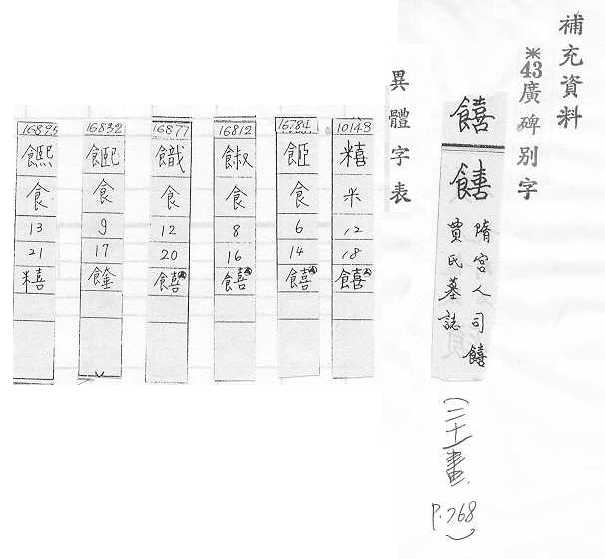 補充資料
※43廣碑別字
饎
𩜇
隋宮人司饎
賈氏墓誌
(二十一畫.
P.768)
異體字表
10148
糦
米
12
18
饎
16784
食
6
14
饎
16812
食
8
16
饎
16877
食
12
20
饎
16832
食
9
17
16895
食
13
21
糦